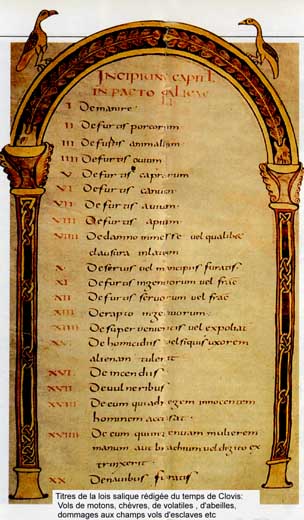 INCIPIUNT CAPITL
IN PACTO SALICAE
I De manire
II De furtis porcorum
III De furtis animalium
IIII De furtis ovium
V De furtis caprarum
VI De furtis canum
VII De furtis avium
VIII De furtis apium
VIIII De damno in messe vel qualibet
clausura
X De servis vel mancipiis furatis
XI De furtis ingenuorum vel frac
XII De furtis servorum vel frac
XIII De rapto ingenuorum
XIIII De superventis vel expoliat
XV De homicidiis vel si quis uxorem
alienam tulerit
XVI De incendiis
XVII De vulneribus
XVIII De eum qui ad regem innocentem
hominem accusat
XVIIII De eum qui ingenuam mulierem
manum aut brachium vel digito ex
trinxerit
XX De furatis
Titres de la lois salique rédigée du temps de Clovis:
Vols de motons, chèvres, de volatiles , d'abeilles,
dommages aux champs vols d'esclaves etc